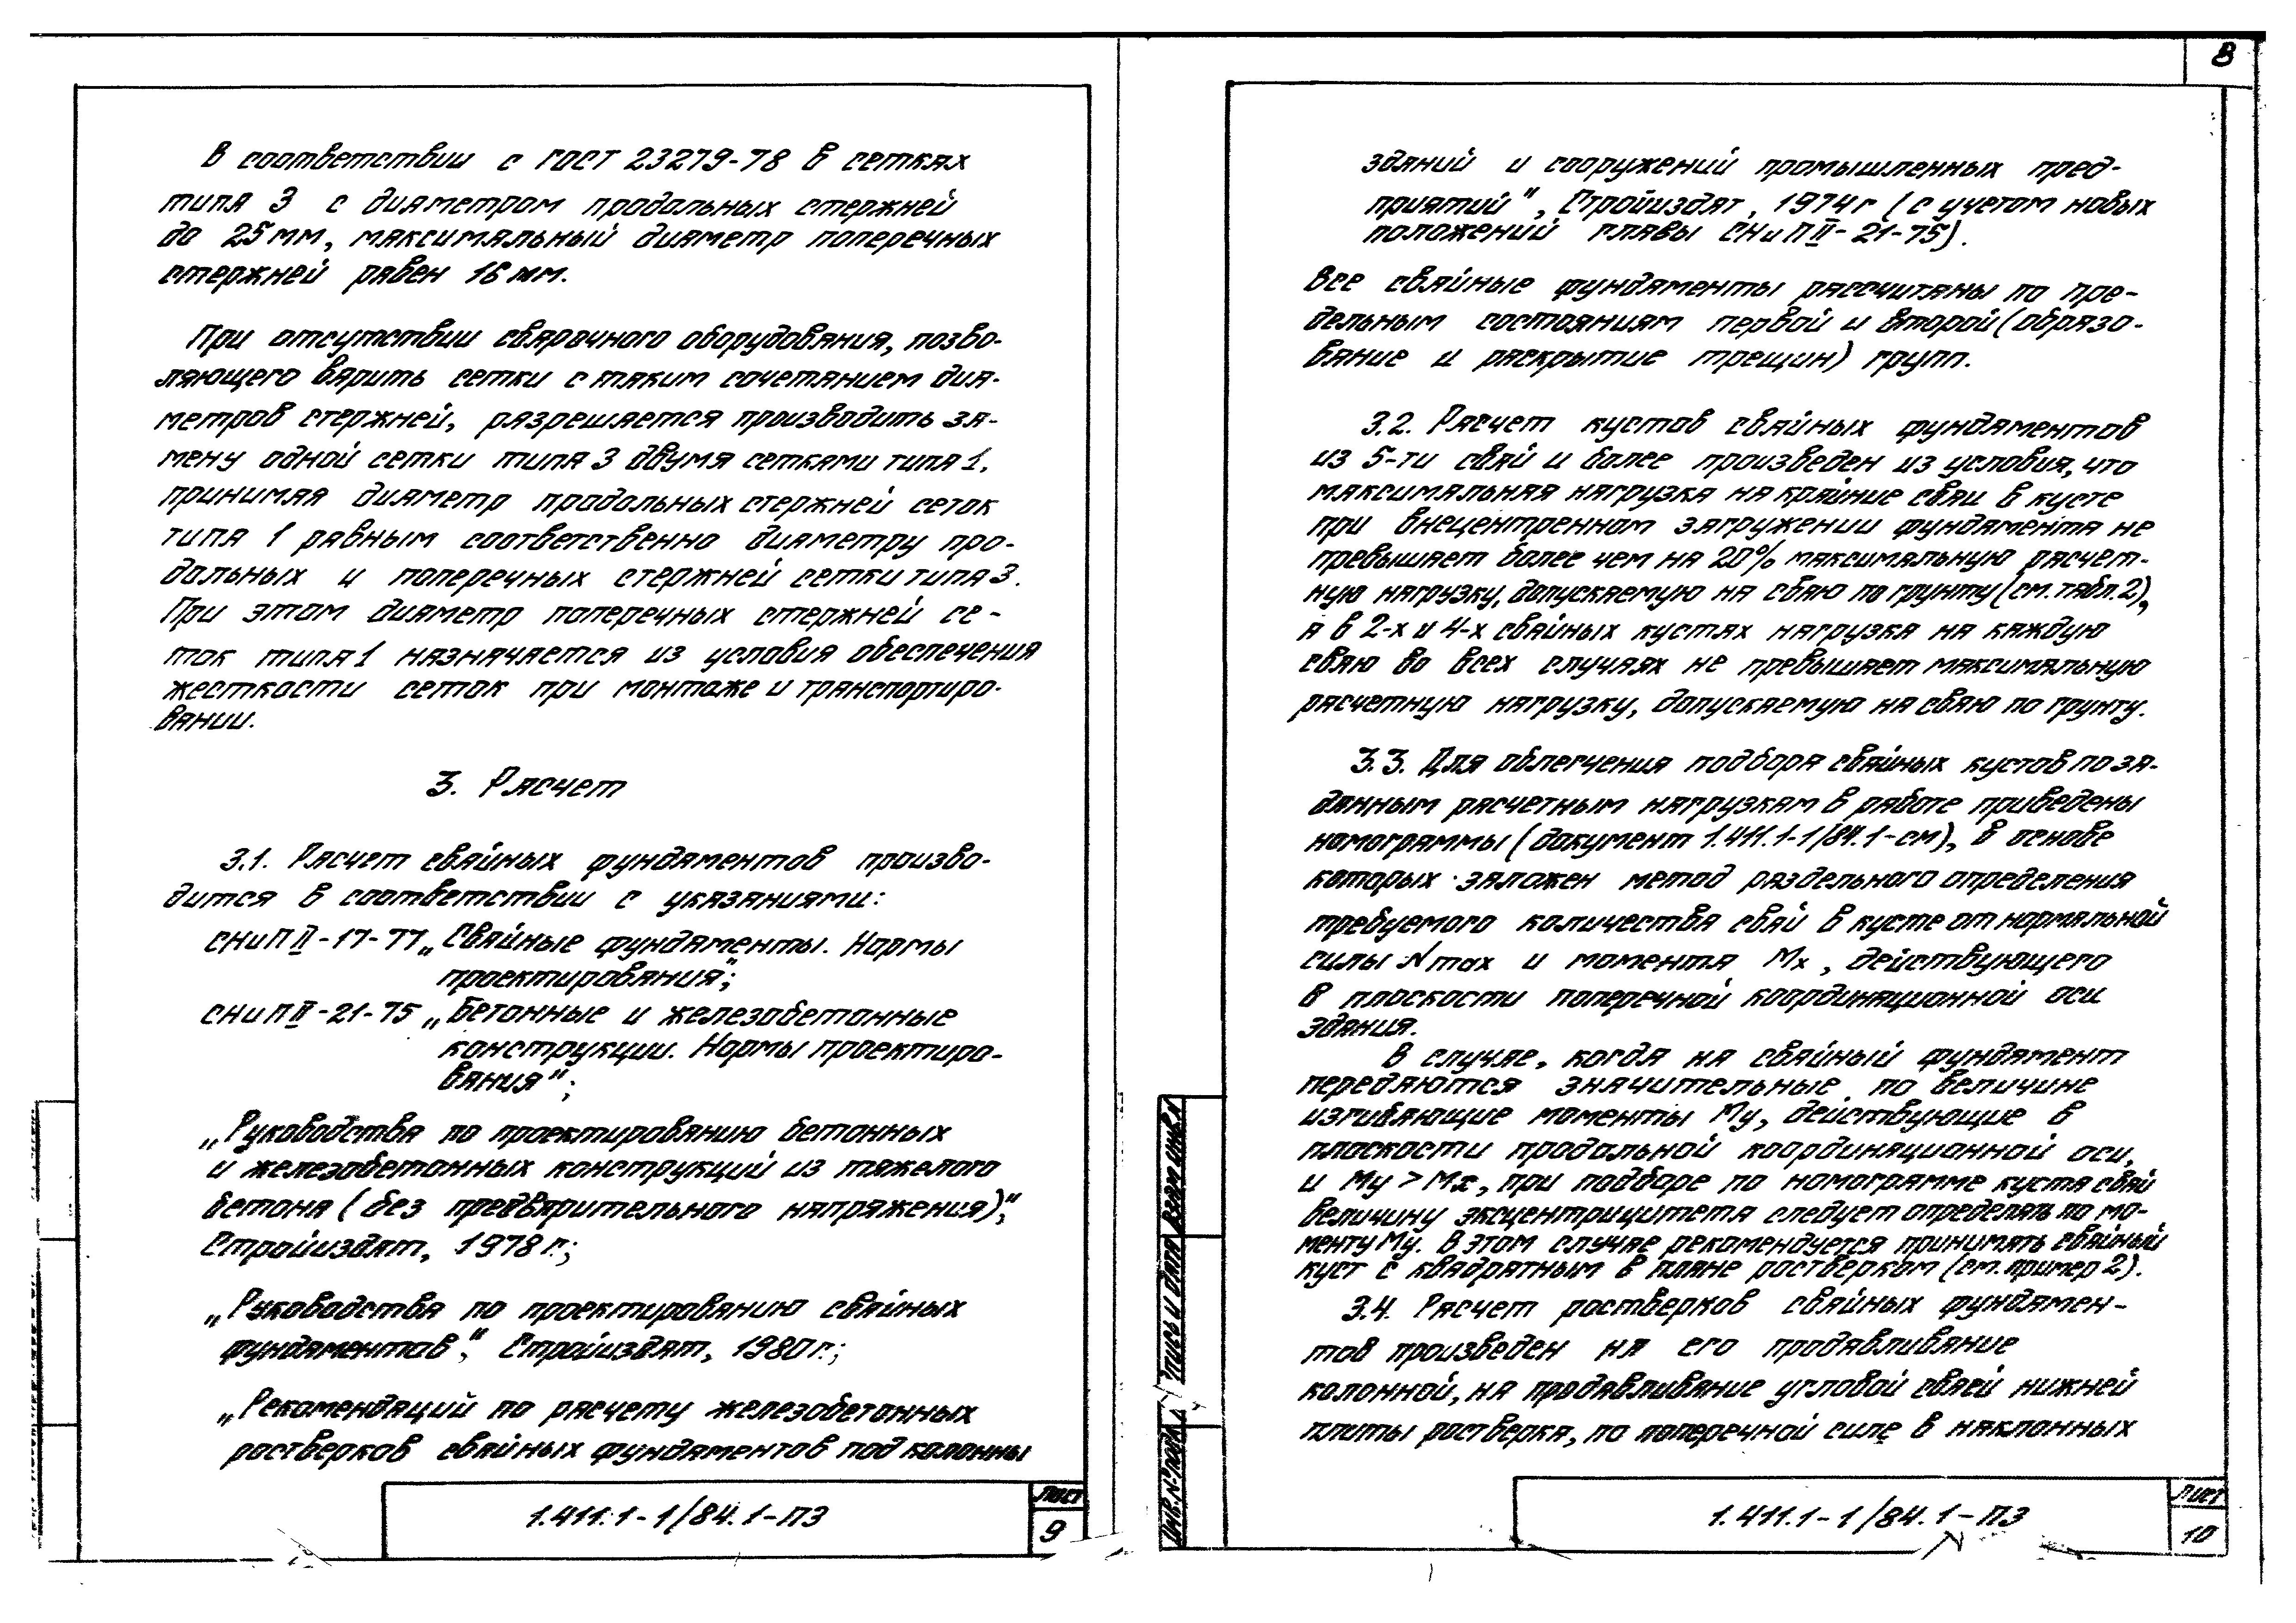 8
В соответствии с ГОСТ 23279-78 в сетках
типа 3 с диаметром продольных стержней
до 25 мм, максимальный диаметр поперечных
стержней равен 16 мм.
При отсутствии сварочного оборудования, позво-
ляющего варить сетки с таким сочетанием диа-
метров стержней, разрешается производить за-
мену одной сетки типа 3 двумя сетками типа 1,
принимая диаметр продольных стержней сеток
типа 1 равным соответственно диаметру про-
дольных и поперечных стержней сетки типа 3.
При этом диаметр поперечных стержней се-
ток типа 1 назначается из условия обеспечения
жесткости сеток при монтаже и транспортиро-
вании.
3. Расчет
3.1. Расчет свайных фундаментов произво-
дится в соответствии с указаниями:
СНиП II-17-77 „Свайные фундаменты. Нормы
проектирования";
СНиП II-21-75 „Бетонные и железобетонные
конструкции. Нормы проектиро-
вания";
„Руководства по проектированию бетонных
и железобетонных конструкций из тяжелого
бетона (без предварительного напряжения)",
Стройиздат, 1978 г.;
„Руководства по проектированию свайных
фундаментов", Стройиздат, 1980 г.;
„Рекомендаций по расчету железобетонных
ростверков свайных фундаментов под колонны
1.411.1-1/84.1-ПЗ
Лист
9
зданий и сооружений промышленных пред-
приятий", Стройиздат, 1974 г (с учетом новых
положений главы СНиП II-21-75).
Все свайные фундаменты рассчитаны по пре-
дельным состояниям первой и второй (образо-
вание и раскрытие трещин) групп.
3.2. Расчет кустов свайных фундаментов
из 5-ти свай и более произведен из условия, что
максимальная нагрузка на крайние сваи в кусте
при внецентренном загружении фундамента не
превышает более чем на 20% максимальную расчет-
ную нагрузку, допускаемую на сваю по грунту (см. табл. 2),
а в 2-х и 4-х свайных кустах нагрузка на каждую
сваю во всех случаях не превышает максимальную
расчетную нагрузку, допускаемую на сваю по грунту.
3.3. Для облегчения подбора свайных кустов по за-
данным расчетным нагрузкам в работе приведены
номограммы (документ 1.411.1-1/84.1-см), в основе
которых заложен метод раздельного определения
требуемого количества свай в кусте от нормальной
силы Nmax и момента Mx, действующего
в плоскости поперечной координационной оси
здания.
В случае, когда на свайный фундамент
передаются значительные по величине
изгибающие моменты My, действующие в
плоскости продольной координационной оси,
и My > Mx, при подборе по номограмме куста свай
величину эксцентрицитета следует определять по мо-
менту My. В этом случае рекомендуется принимать свайный
куст с квадратным в плане ростверком (см. пример 2).
3.4. Расчет ростверков свайных фундамен-
тов произведен на его продавливание
колонной, на продавливание угловой сваей нижней
плиты ростверка, по поперечной силе в наклонных
Взам инв. л
Пись и дата
Инв. № подл.
1.411.1-1/84.1-ПЗ
Лист
10